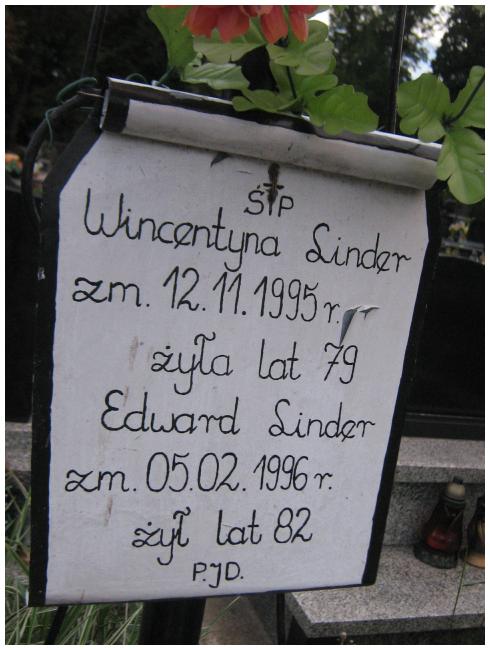 ŚP
Wincentyna Linder
zm. 12.11.1995 r.
żyła lat 79
Edward Linder
zm. 05.02.1996 r.
żył lat 82
P.JD.